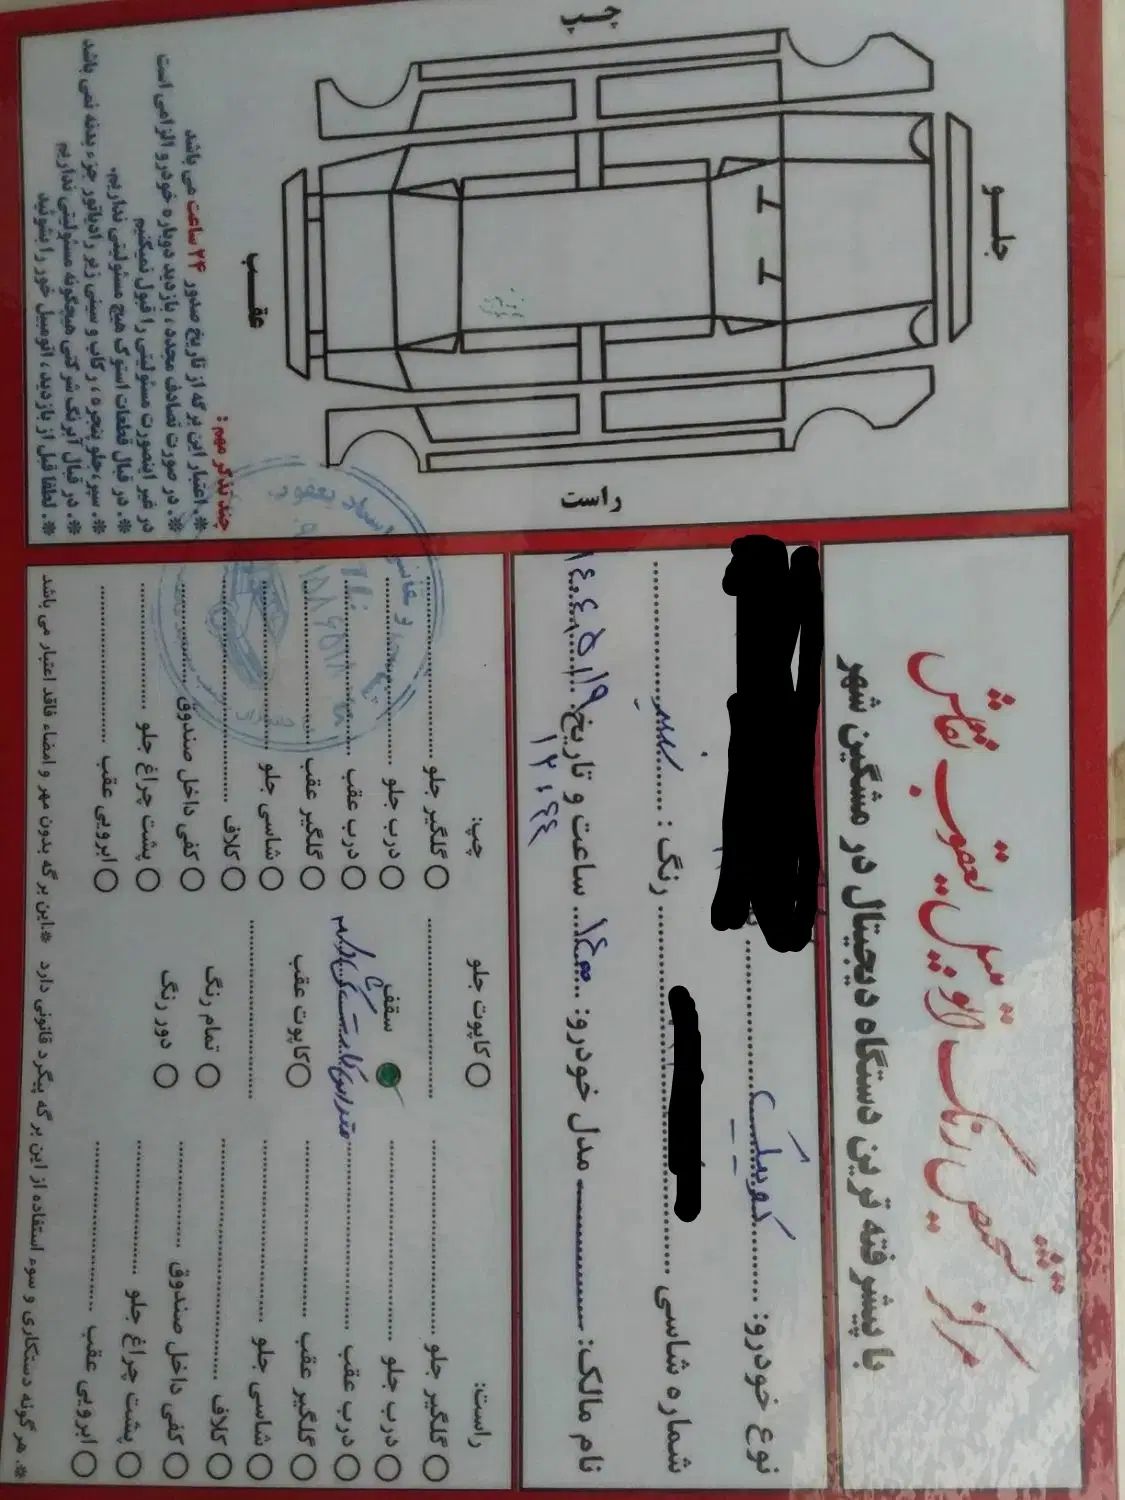 مرکز تشخیص رنگ اتومبیل یعقوب نقاش
با پیشرفته ترین دستگاه دیجیتال در مشگین شهر
نوع خودرو: کوییک
شماره شاسی رنگ: سفید
نام مالک: مدل خودرو: ۱۴۰۰ ساعت و تاریخ: ۱۴۰۴،۵،۱۹
۱۲:۴۴
راست: کاپوت جلو چپ:
گلگیر جلو گلگیر جلو
درب جلو سقف درب جلو
درب عقب درب عقب
گلگیر عقب کاپوت عقب گلگیر عقب
شاسی جلو شاسی جلو
کلاف تمام رنگ کلاف
کفی داخل صندوق دور رنگ کفی داخل صندوق
پشت چراغ جلو پشت چراغ جلو
ابرویی عقب ابرویی عقب
*. هر گونه دستکاری و سوء استفاده از این برگه پیگرد قانونی دارد *.این برگه بدون مهر و امضاء فاقد اعتبار می باشد
چپ
جلو
عقب
راست
چند تذکر مهم :
*. اعتبار این برگه از تاریخ صدور ۲۴ ساعت می باشد
*. در صورت تصادف مجدد، بازدید دوباره خودرو الزامی است
در غیر اینصورت مسئولیتی را قبول نمیکنیم
*. در قبال قطعات استوک هیچ مسئولیتی نداریم.
*. سپر،جلو پنجره ، رکاب و سینی زیر رادیاتور جزء بدنه نمی باشد
*. در قبال آبرنگ شرکتی هیچگونه مسئولیتی نداریم
*. لطفا قبل از بازدید، اتومبیل خود را بشوئید